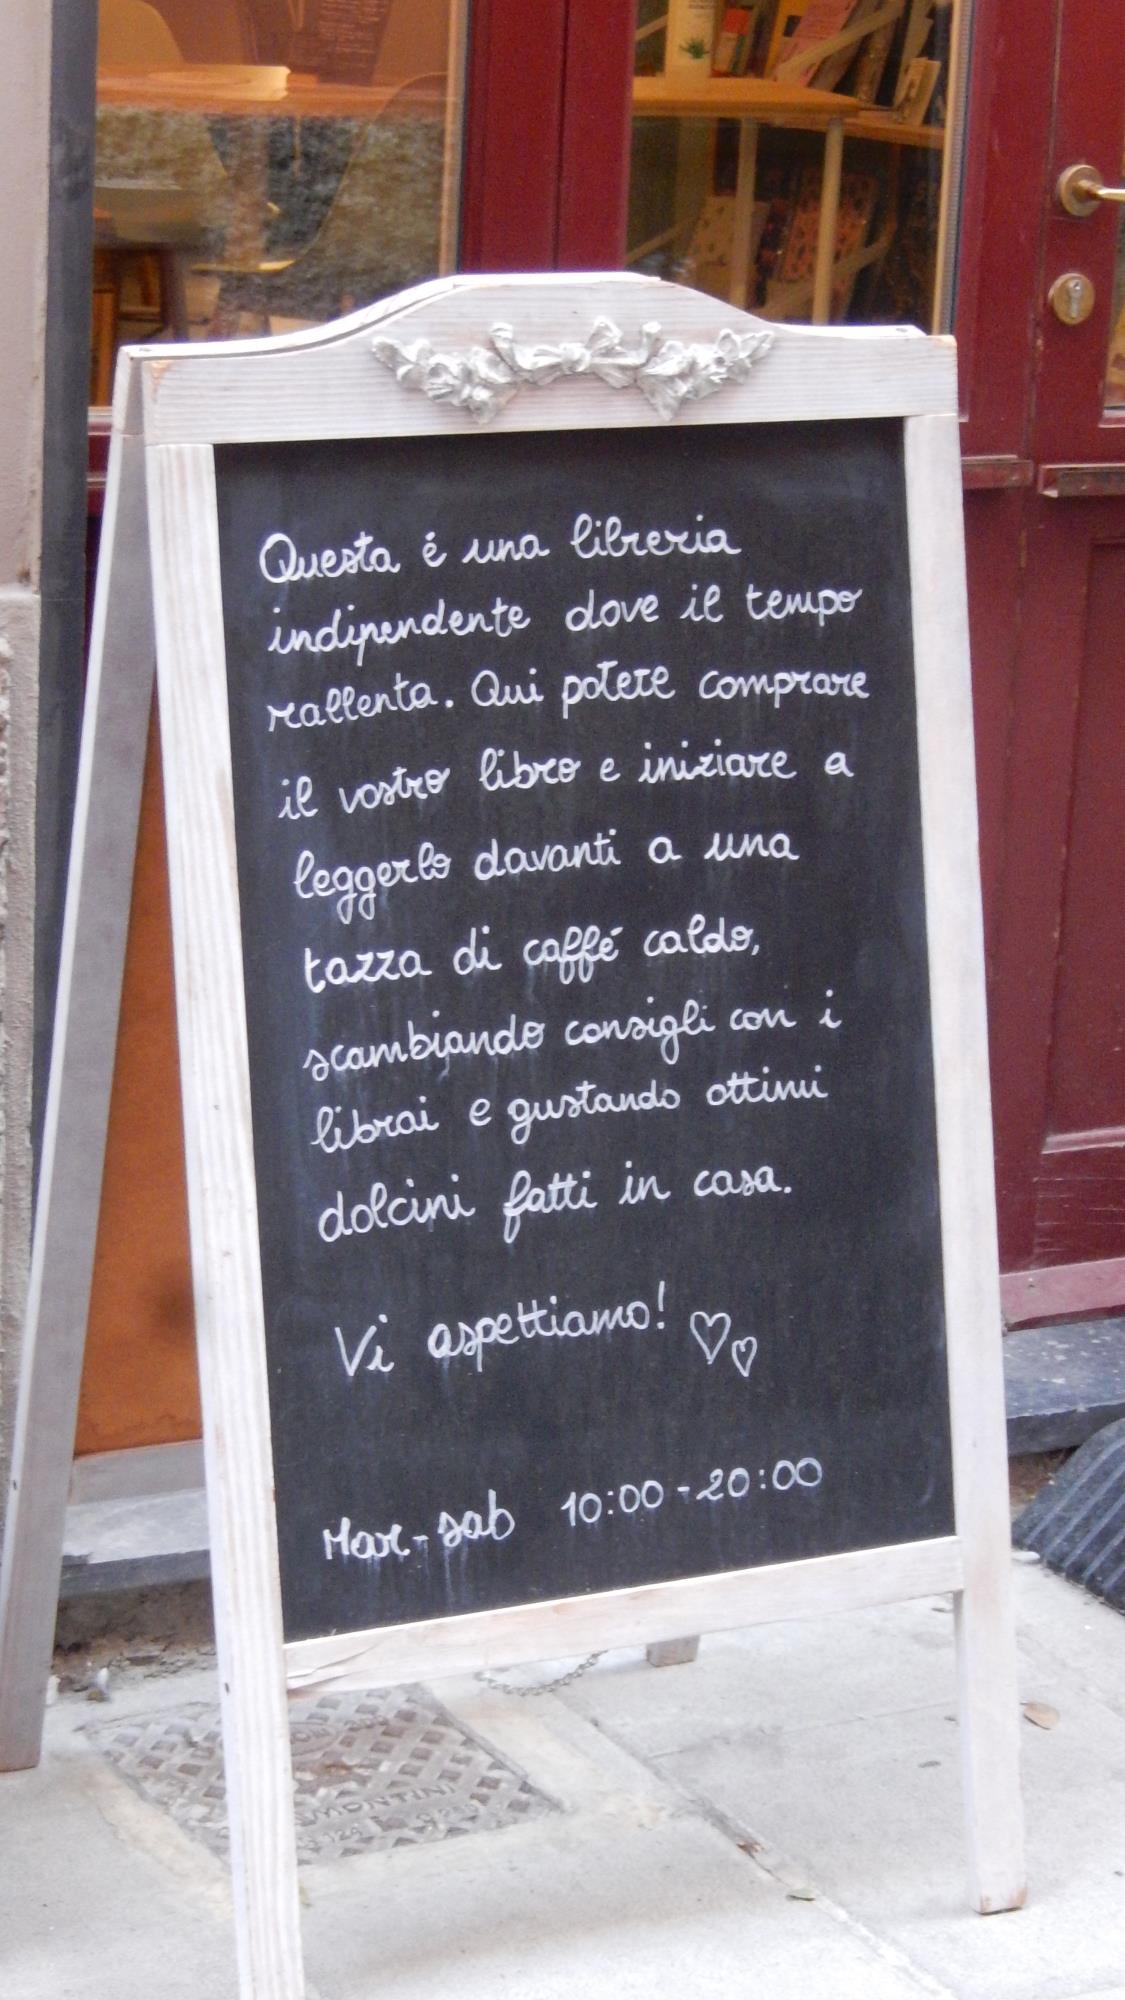 Questa é una libreria
indipendente dove il tempo
rallenta. Qui potete comprare
il vostro libro e iniziare a
leggerlo davanti a una
tazza di caffé caldo,
scambiando consigli con i
librai e gustando ottimi
dolcini fatti in casa.
Vi aspettiamo!
Mar-sab 10:00-20:00